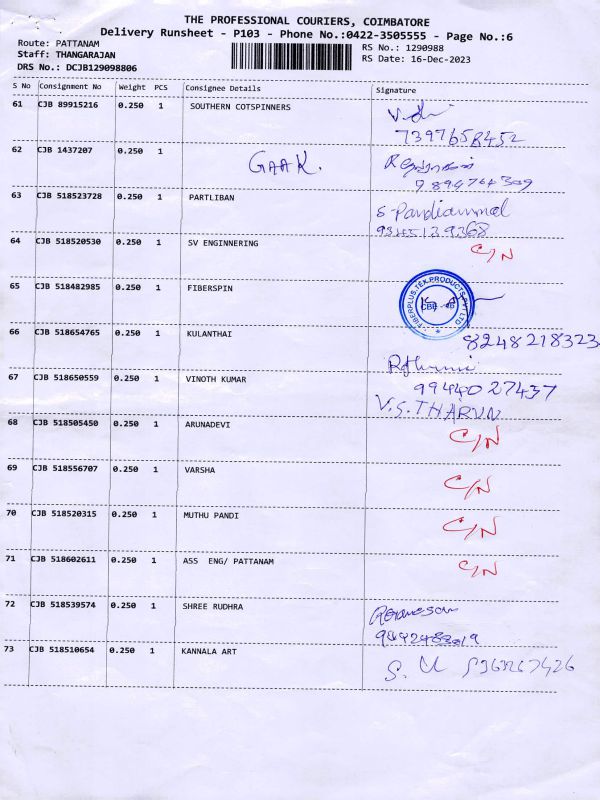 THE PROFESSIONAL COURIERS, COIMBATORE
Delivery Runsheet - P103 - Phone No.:0422-3505555 - Page No.:6
Route: PATTANAM
RS No.: 1290988
Staff: THANGARAJAN
RS Date: 16-Dec-2023
DRS No.: DCJB129098806
S No Consignment No Weight PCS Consignee Details Signature
61 CJB 89915216 0.250 1 SOUTHERN COTSPINNERS
7397658452
62 CJB 1437207 0.250 1 GAAK.
63 CJB 518523728 0.250 1 PARTLIBAN S. Pandiammal
64 CJB 518520530 0.250 1 SV ENGINNERING C/N
65 CJB 518482985 0.250 1 FIBERSPIN FIBERPLUS.TEX.PRODUCTS.PVT.LTD CBE
66 CJB 518654765 0.250 1 KULANTHAI 8248218323
67 CJB 518650559 0.250 1 VINOTH KUMAR 9944027437
V.S. THARUN
68 CJB 518505450 0.250 1 ARUNADEVI C/N
69 CJB 518556707 0.250 1 VARSHA C/N
70 CJB 518520315 0.250 1 MUTHU PANDI C/N
71 CJB 518602611 0.250 1 ASS ENG/ PATTANAM C/N
72 CJB 518539574 0.250 1 SHREE RUDHRA
73 CJB 518510654 0.250 1 KANNALA ART